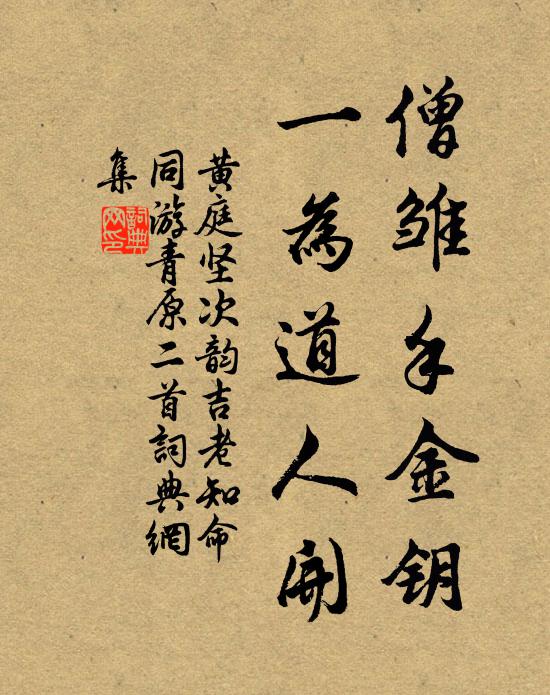 僧雏手金钥
一為道人開
黄庭坚次韵吉老知命
同游青原二首詞典網
集
詞典
网印